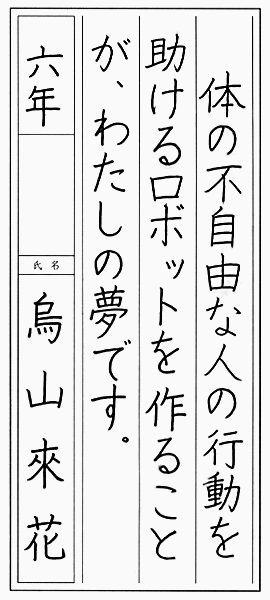 体の不自由な人の行動を
助けるロボットを作ること
が、わたしの夢です。
六年
氏名
烏山來花